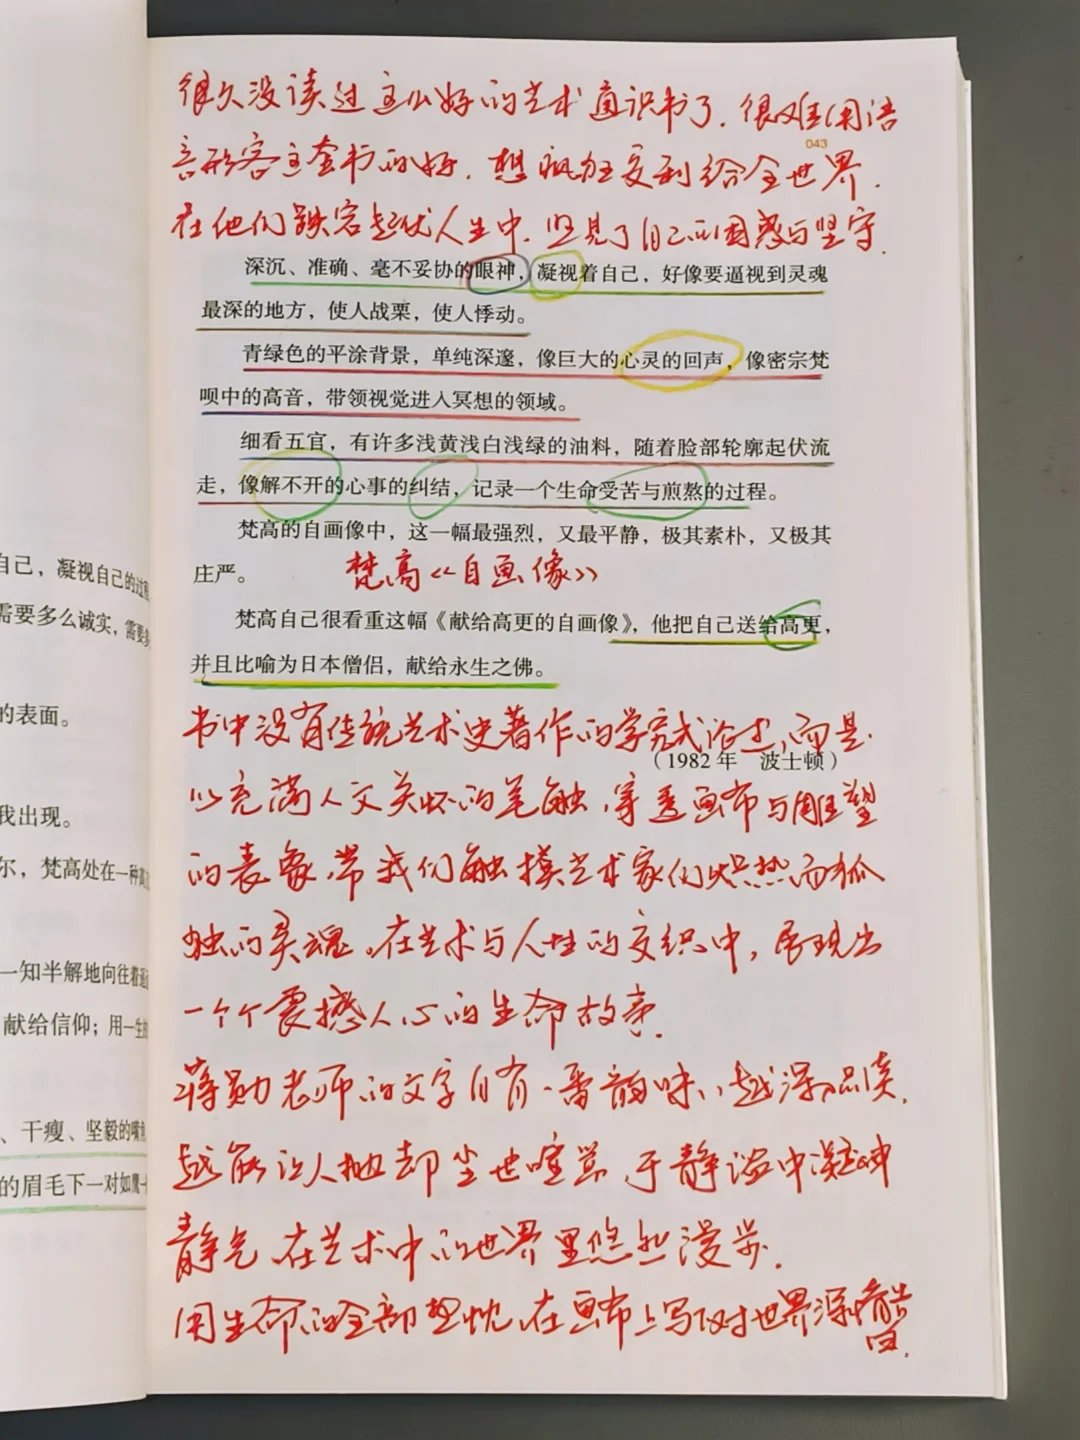 很久没读过这么好的艺术通识书了,很难用语
043
言形容这套书的好,想疯狂安利给全世界,
在他们跌宕起伏人生中,望见了自己的困惑与坚守,
深沉、准确、毫不妥协的眼神,凝视着自己,好像要逼视到灵魂
最深的地方,使人战栗,使人悸动。
青绿色的平涂背景,单纯深邃,像巨大的心灵的回声,像密宗梵
呗中的高音,带领视觉进入冥想的领域。
细看五官,有许多浅黄浅白浅绿的油料,随着脸部轮廓起伏流
走,像解不开的心事的纠结,记录一个生命受苦与煎熬的过程。
梵高的自画像中,这一幅最强烈,又最平静,极其素朴,又极其
庄严。
梵高《自画像》
梵高自己很看重这幅《献给高更的自画像》,他把自己送给高更,
并且比喻为日本僧侣,献给永生之佛。
书中没有传统艺术史著作的学究式论述,而是
(1982年 波士顿)
以充满人文关怀的笔触,穿透画布与雕塑
的表象,带我们触摸艺术家们炽热而孤
独的灵魂。在艺术与人性的交织中,展现出
一个个震撼人心的生命故事.
蒋勋老师的文字自有一番韵味,越深品读,
越能让人抛却尘世喧嚣,于静谧中凝神
静气,在艺术中的世界里悠然漫步.
用生命的全部,在画布上写下对世界深情告白.
自己,凝视自己的过程
需要多么诚实,需要
的表面。
我出现。
尔,梵高处在一种
一知半解地向往着
献给信仰;用一生
、干瘦、坚毅的嘴
的眉毛下一对如鹰